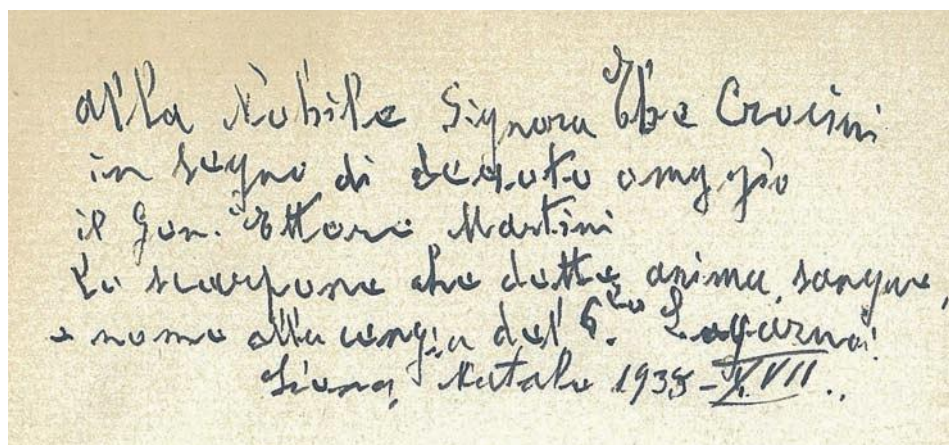 alla Nobile Signora Ebe Crocini
in segno di devoto omaggio
il Gen. Ettore Martini
Lo scarpone che dette anima, sangue,
e nome alla cengia del 6.to Lagazuoi.
Siena, Natale 1938-XVII.